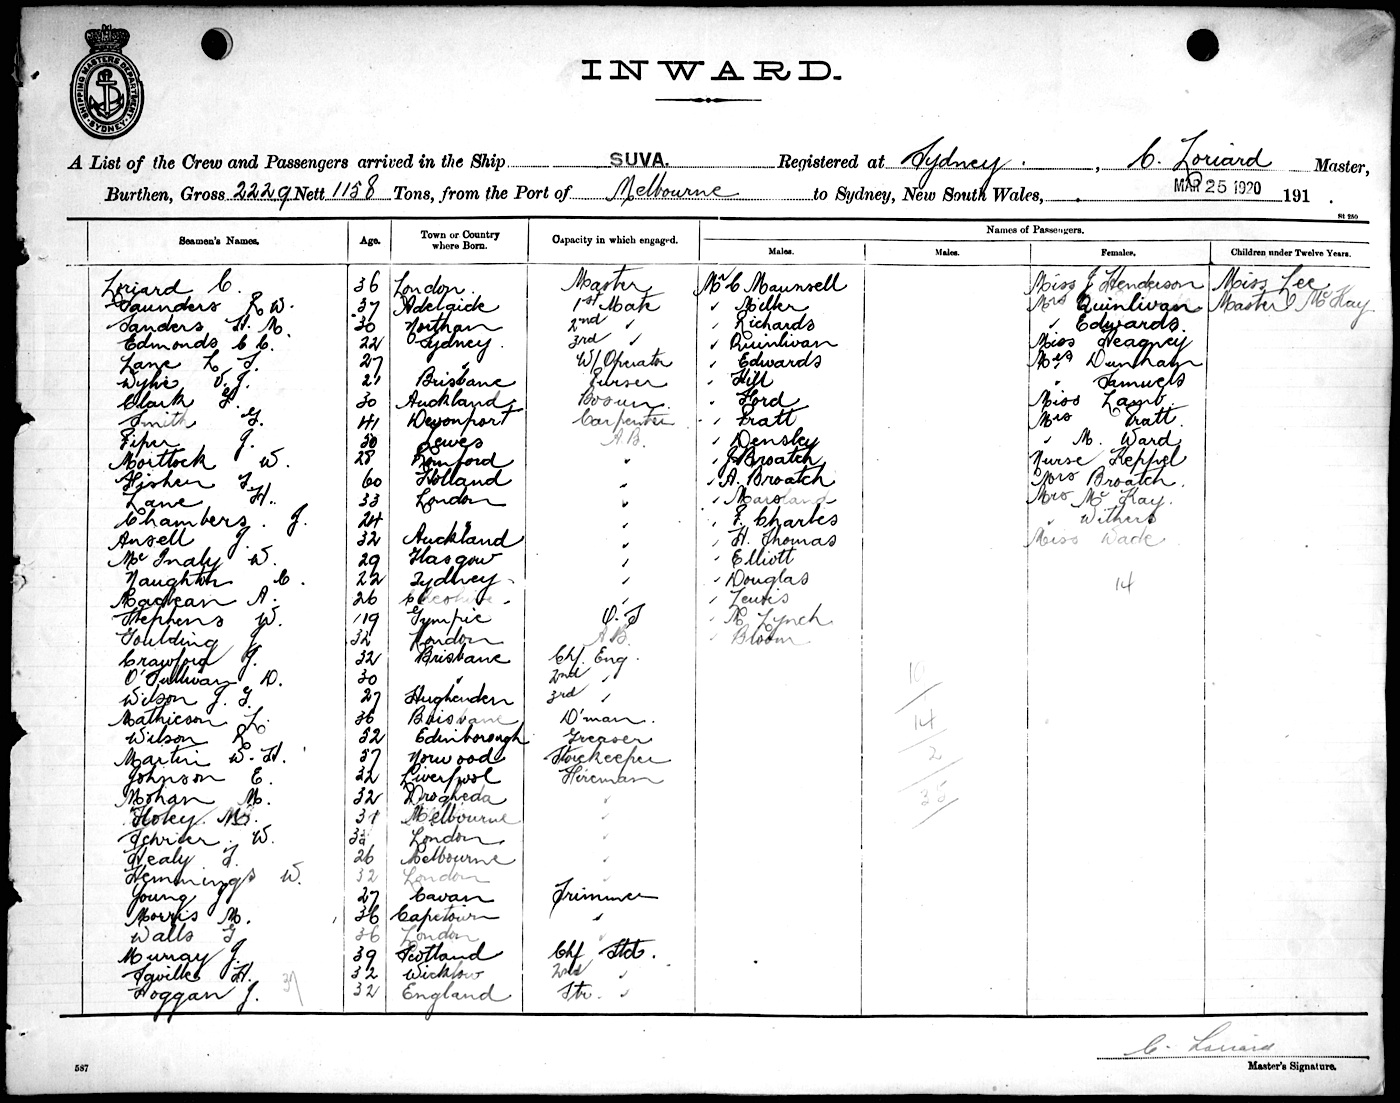 SHIPPING MASTERS DEPARTMENT SYDNEY
INWARD.
A List of the Crew and Passengers arrived in the Ship SUVA. Registered at Sydney, C. Loriard Master,
Burthen, Gross 2229 Nett 1158 Tons, from the Port of Melbourne to Sydney, New South Wales, MAR 25 1920 191 .
St 250
Seamen's Names. Age. Town or Country where Born. Capacity in which engaged. Names of Passengers.
Males. Males. Females. Children under Twelve Years.
Loriard C. 36 London. Master Mr C Maunsell Miss J Henderson Miss Lee
Saunders L W. 37 Adelaide 1st Mate " Milker Mrs Quinlivan Master I McKay
Sanders H. M. 30 Northam 2nd " " Richards " Edwards.
Edmonds C C. 22 Sydney. 3rd " " Quinlivan Miss Heagney
Lane L. S. 27 " W/Operator " Edwards Mrs Dunham
Wylie V. J. 21 Brisbane Purser " Hill " Samuels
Clark F. 30 Auckland Bosun. " Ford Miss Lamb.
Smith G. 41 Devonport Carpenter " Pratt Mrs Pratt.
Piper J. 30 Lewes A.B. " Densky " M. Ward
Mortlock W. 28 Romford " " J Broatch Nurse Keppel
Fisher F. 60 Holland " " A. Broatch Mrs Broatch.
Lane H. 33 London " " Marsland Mrs McKay.
Chambers. J. 24 " " " F. Charles " Withers
Ansell J. 32 Auckland " " H. Thomas Miss Wade
Mc Inaly W. 29 Glasgow " " Elliott
Naughton C. 22 Sydney " " Douglas 14
Maclean A. 26 " " Lewis
Stephens W. 19 Gympie O.S " M Lynch
Goulding J. 32 London A.B. " Bloom
Crawford J. 32 Brisbane Chf. Eng.
O'Sullivan D. 30 " 2nd " 19
Wilson J. G. 27 Hughenden 3rd "
Mathieson L. 36 Brisbane D'man. 14
Wilson R 32 Edinborough Greaser
Martin W. H. 37 Norwood Storekeeper 2
Johnson E. 32 Liverpool Fireman
Mohan M. 32 Drogheda " 35
Hokey M. 31 Melbourne "
Schrier. W. London. "
Healy J. 26 Melbourne "
Hemmings W. 32 London "
Young J 27 Cavan Trimmer
Morris M. 36 Capetown "
Walls G 36 London "
Murray J. 39 Scotland Chf Std.
Saville H. 32 Wicklow 2nd "
Hoggan J. 37 32 England Str. "
C. Loriard
Master's Signature.
587